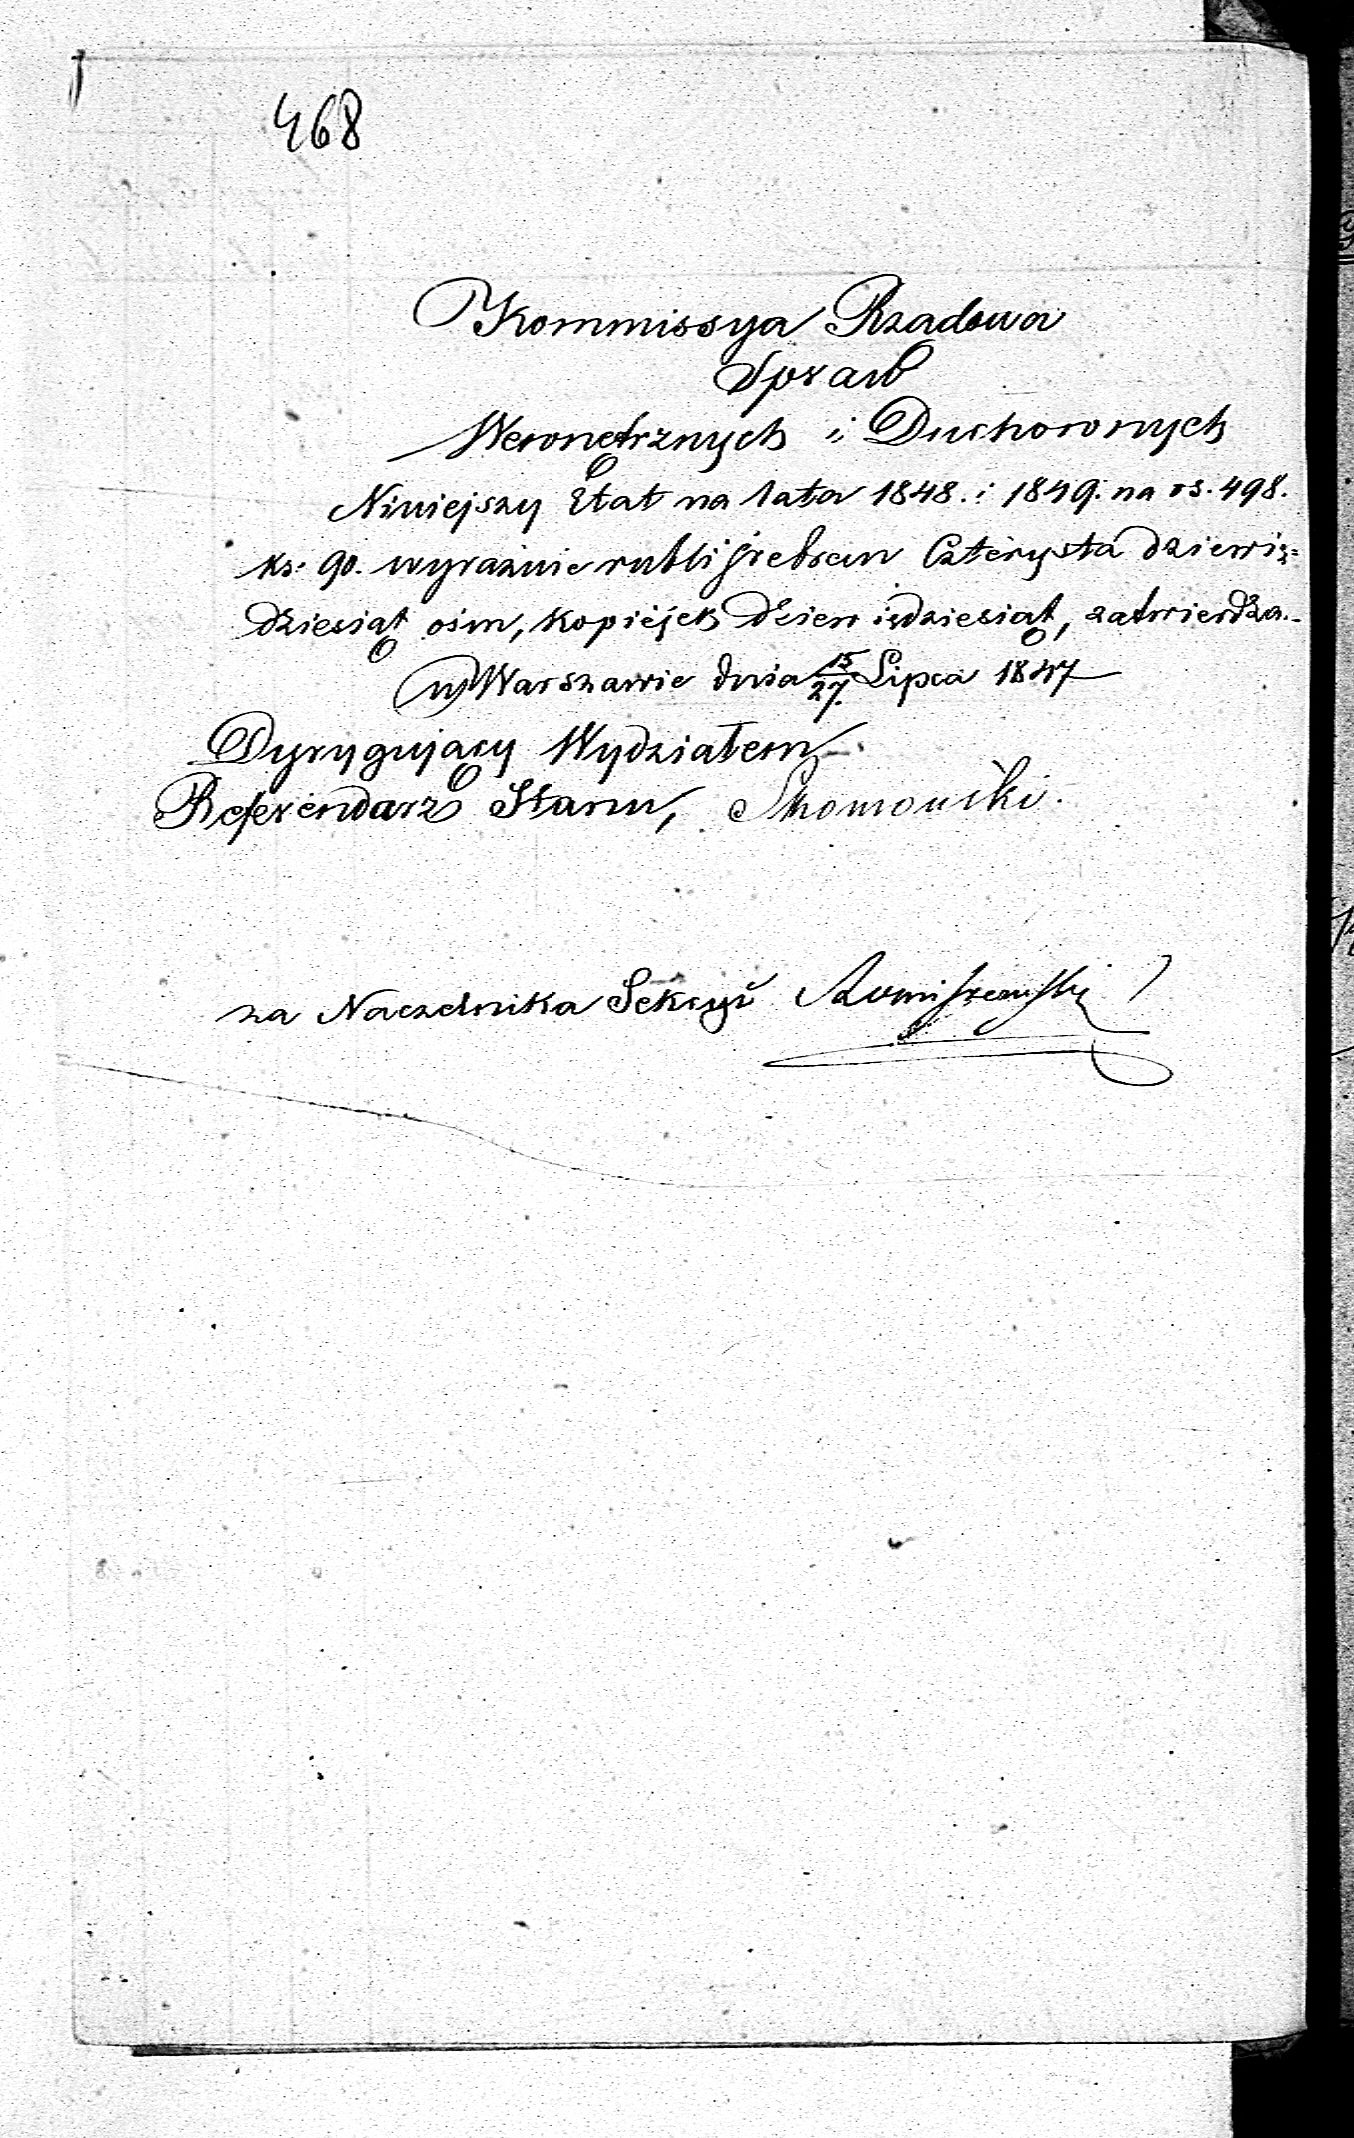 468
Kommissya Rządowa
Spraw
Wewnętrznych i Duchownych
Niniejszy Etat na lata 1848. i 1849. na rs. 498.
ks. 90. wyraźnie rubli srebrem Czterysta dziewię=
dziesiąt ośm, kopiejek dziewiędziesiąt, zatwierdza.
w Warszawie dnia 15/27. Lipca 1847
Dyrygujący Wydziałem
Referendarz Stanu,
za Naczelnika Sekcyi